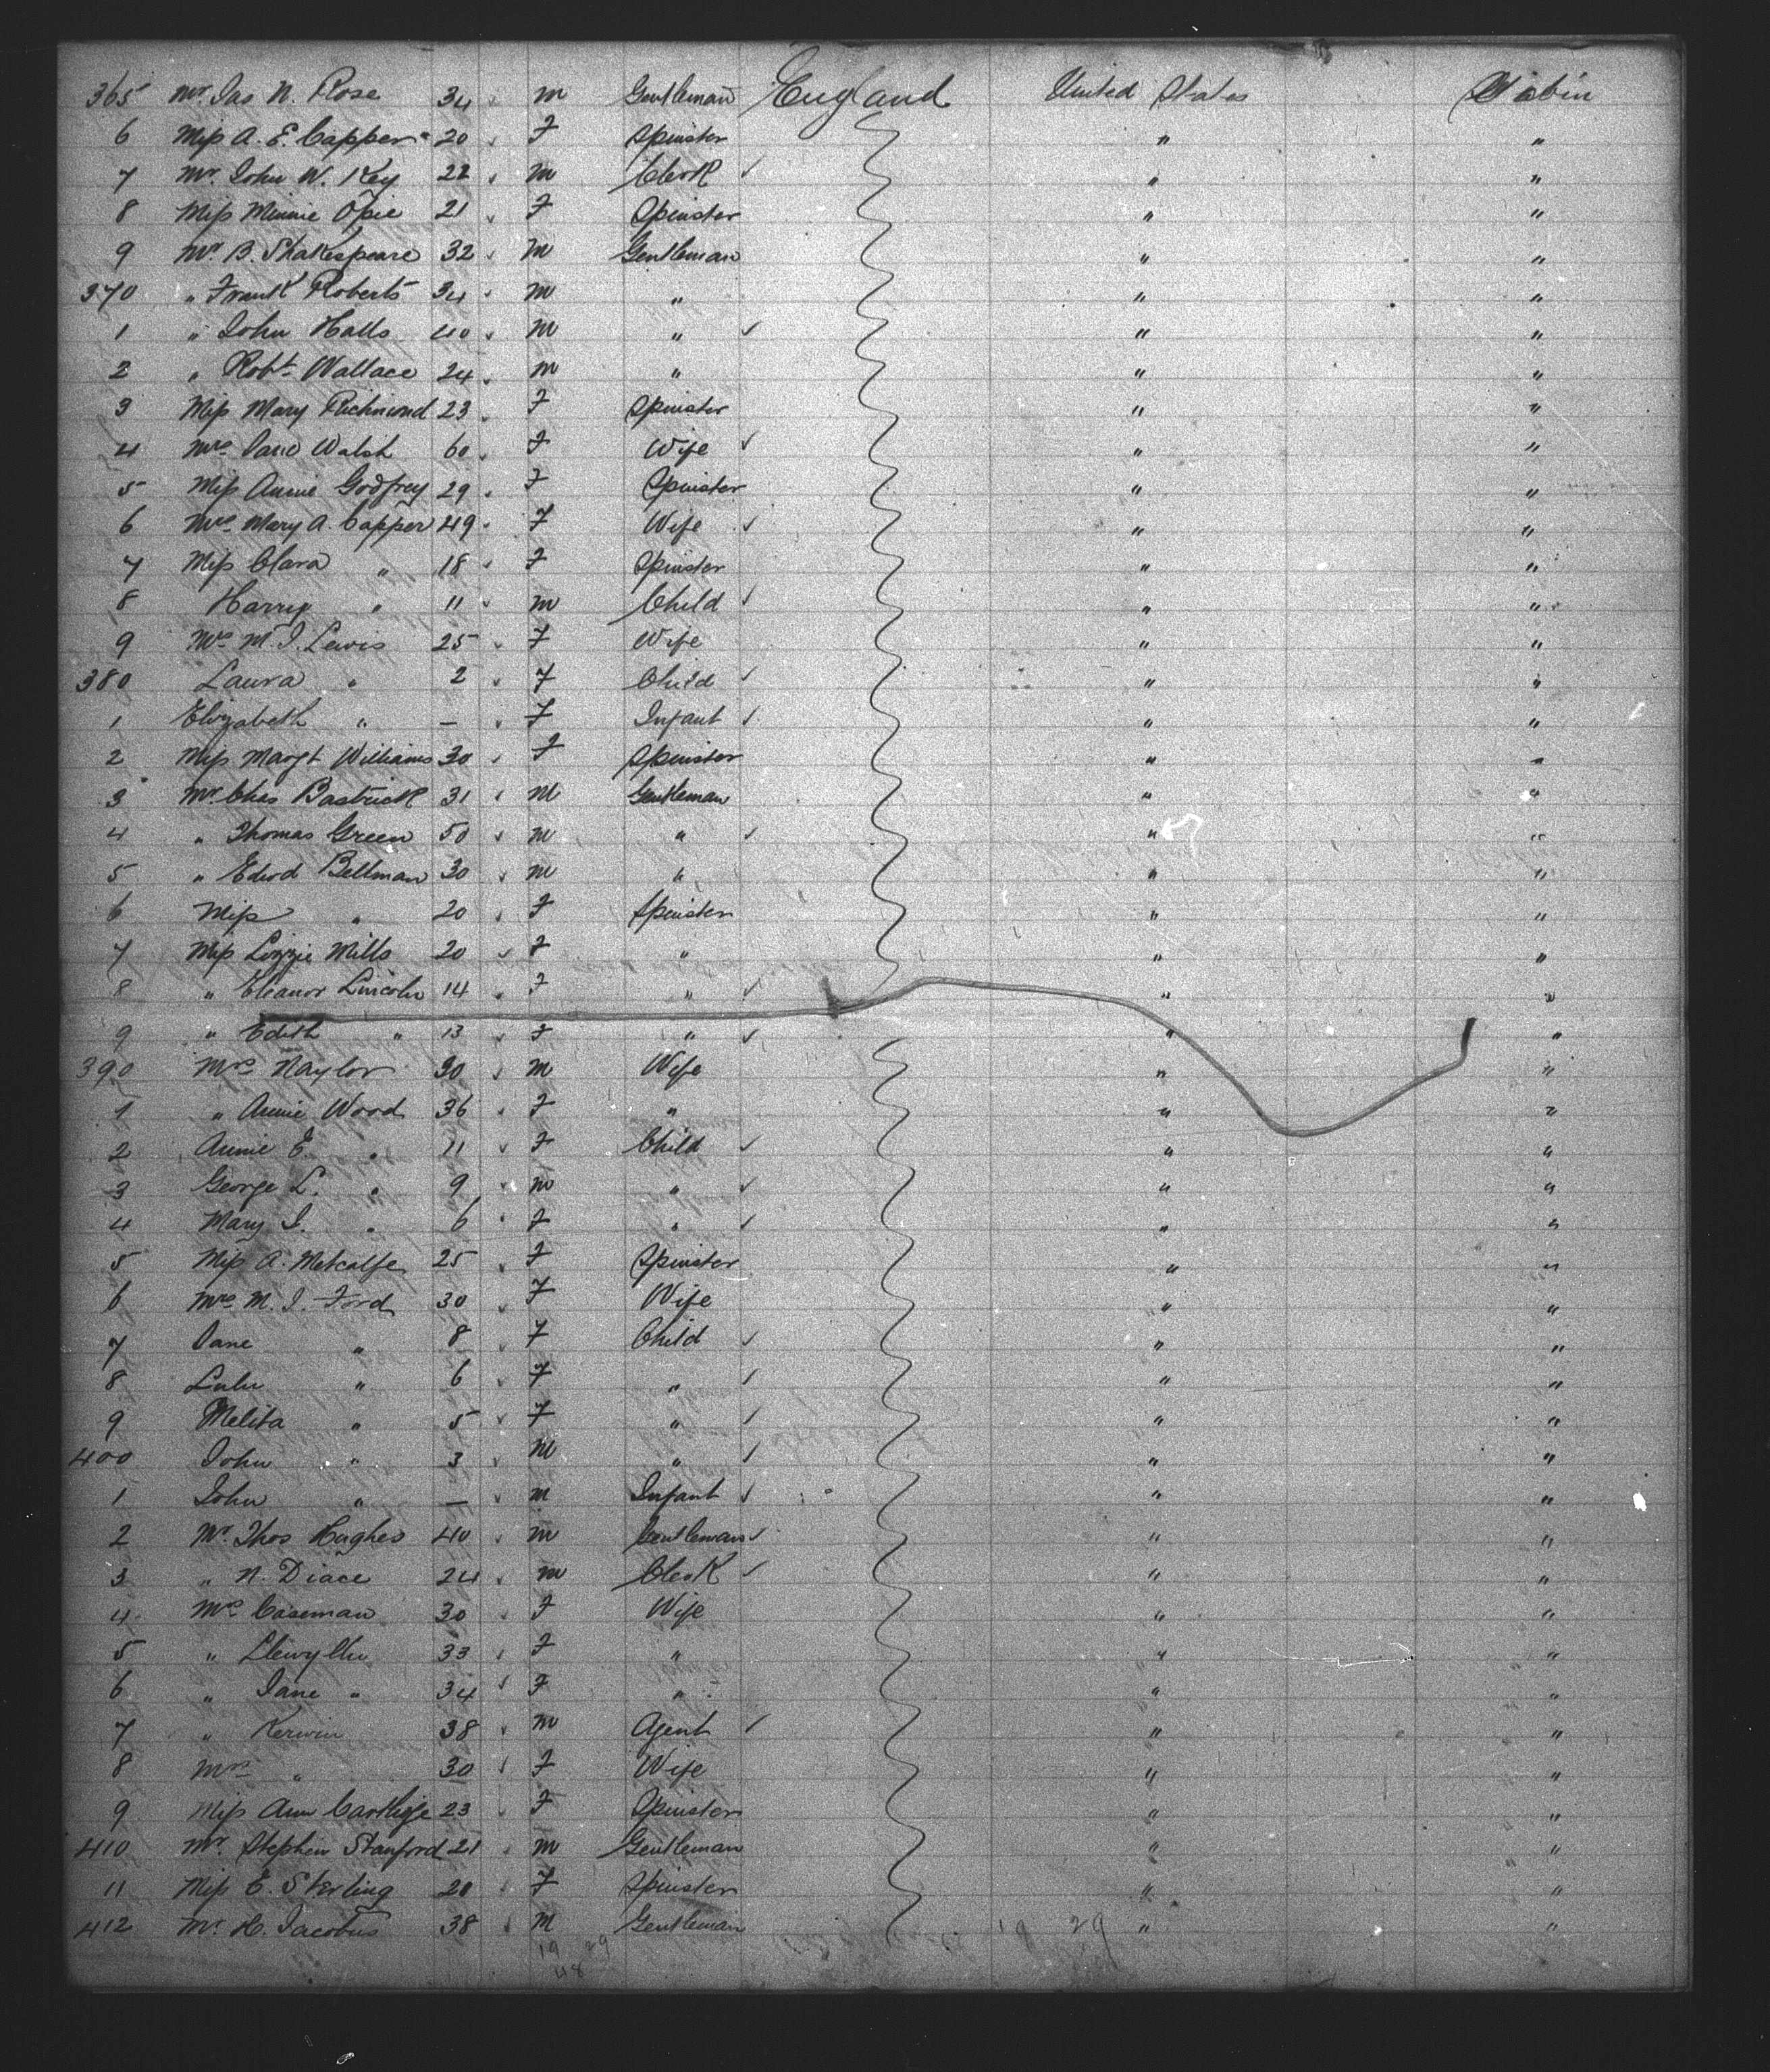 365 Mr. Jas N. Rose 34 M Gentleman England United States Cabin
6 Miss A. E. Capper 20 F Spinster " "
7 Mr. John W. Key 22 M Clerk " "
8 Miss Minnie Opie 21 F Spinster " "
9 Mr. B. Shakespeare 32 M Gentleman " "
370 " Frank Roberts 34 M " " "
1 " John Halls 40 M " " "
2 " Robt. Wallace 24 M " " "
3 Miss Mary Richmond 23 F Spinster " "
4 Mrs. Jane Walsh 60 F Wife " "
5 Miss Annie Godfrey 29 F Spinster " "
6 Mrs. Mary A. Capper 49 F Wife " "
7 Miss Clara " 18 F Spinster " "
8 Harry " 11 M Child " "
9 Mrs. M. J. Lewis 25 F Wife " "
380 Laura " 2 F Child " "
1 Elizabeth " — F Infant " "
2 Miss Margt Williams 30 F Spinster " "
3 Mr. Chas Bastrick 31 M Gentleman " "
4 " Thomas Green 50 M " " "
5 " Edwd Bellman 30 M " " "
6 Miss " 20 F Spinster " "
7 Miss Lizzie Mills 20 F " " "
8 " Eleanor Lincoln 14 F " " "
9 " Edith " 13 F " " "
390 Mrs. Naylor 30 M Wife " "
1 " Annie Wood 36 F " " "
2 Annie E. " 11 F Child " "
3 George L. " 9 M " " "
4 Mary J. " 6 F " " "
5 Miss A. Metcalfe 25 F Spinster " "
6 Mrs. M. J. Ford 30 F Wife " "
7 Jane " 8 F Child " "
8 Lulu " 6 F " " "
9 Melita " 5 F " " "
400 John " 3 M " " "
1 John " — M Infant " "
2 Mr. Thos Hughes 40 M Gentleman " "
3 " N. Diace 24 M Clerk " "
4 Mrs. Caseman 30 F Wife " "
5 " Llewylln 33 F " " "
6 " Jane " 34 F " " "
7 " Kerwin 38 M Agent " "
8 Mrs. " 30 F Wife " "
9 Miss Ann Carthige 23 F Spinster " "
410 Mr. Stephen Stanford 21 M Gentleman " "
11 Miss E. Sterling 20 F Spinster " "
412 Mr. H. Jacobus 38 M Gentleman " "
19 29 19 29
48